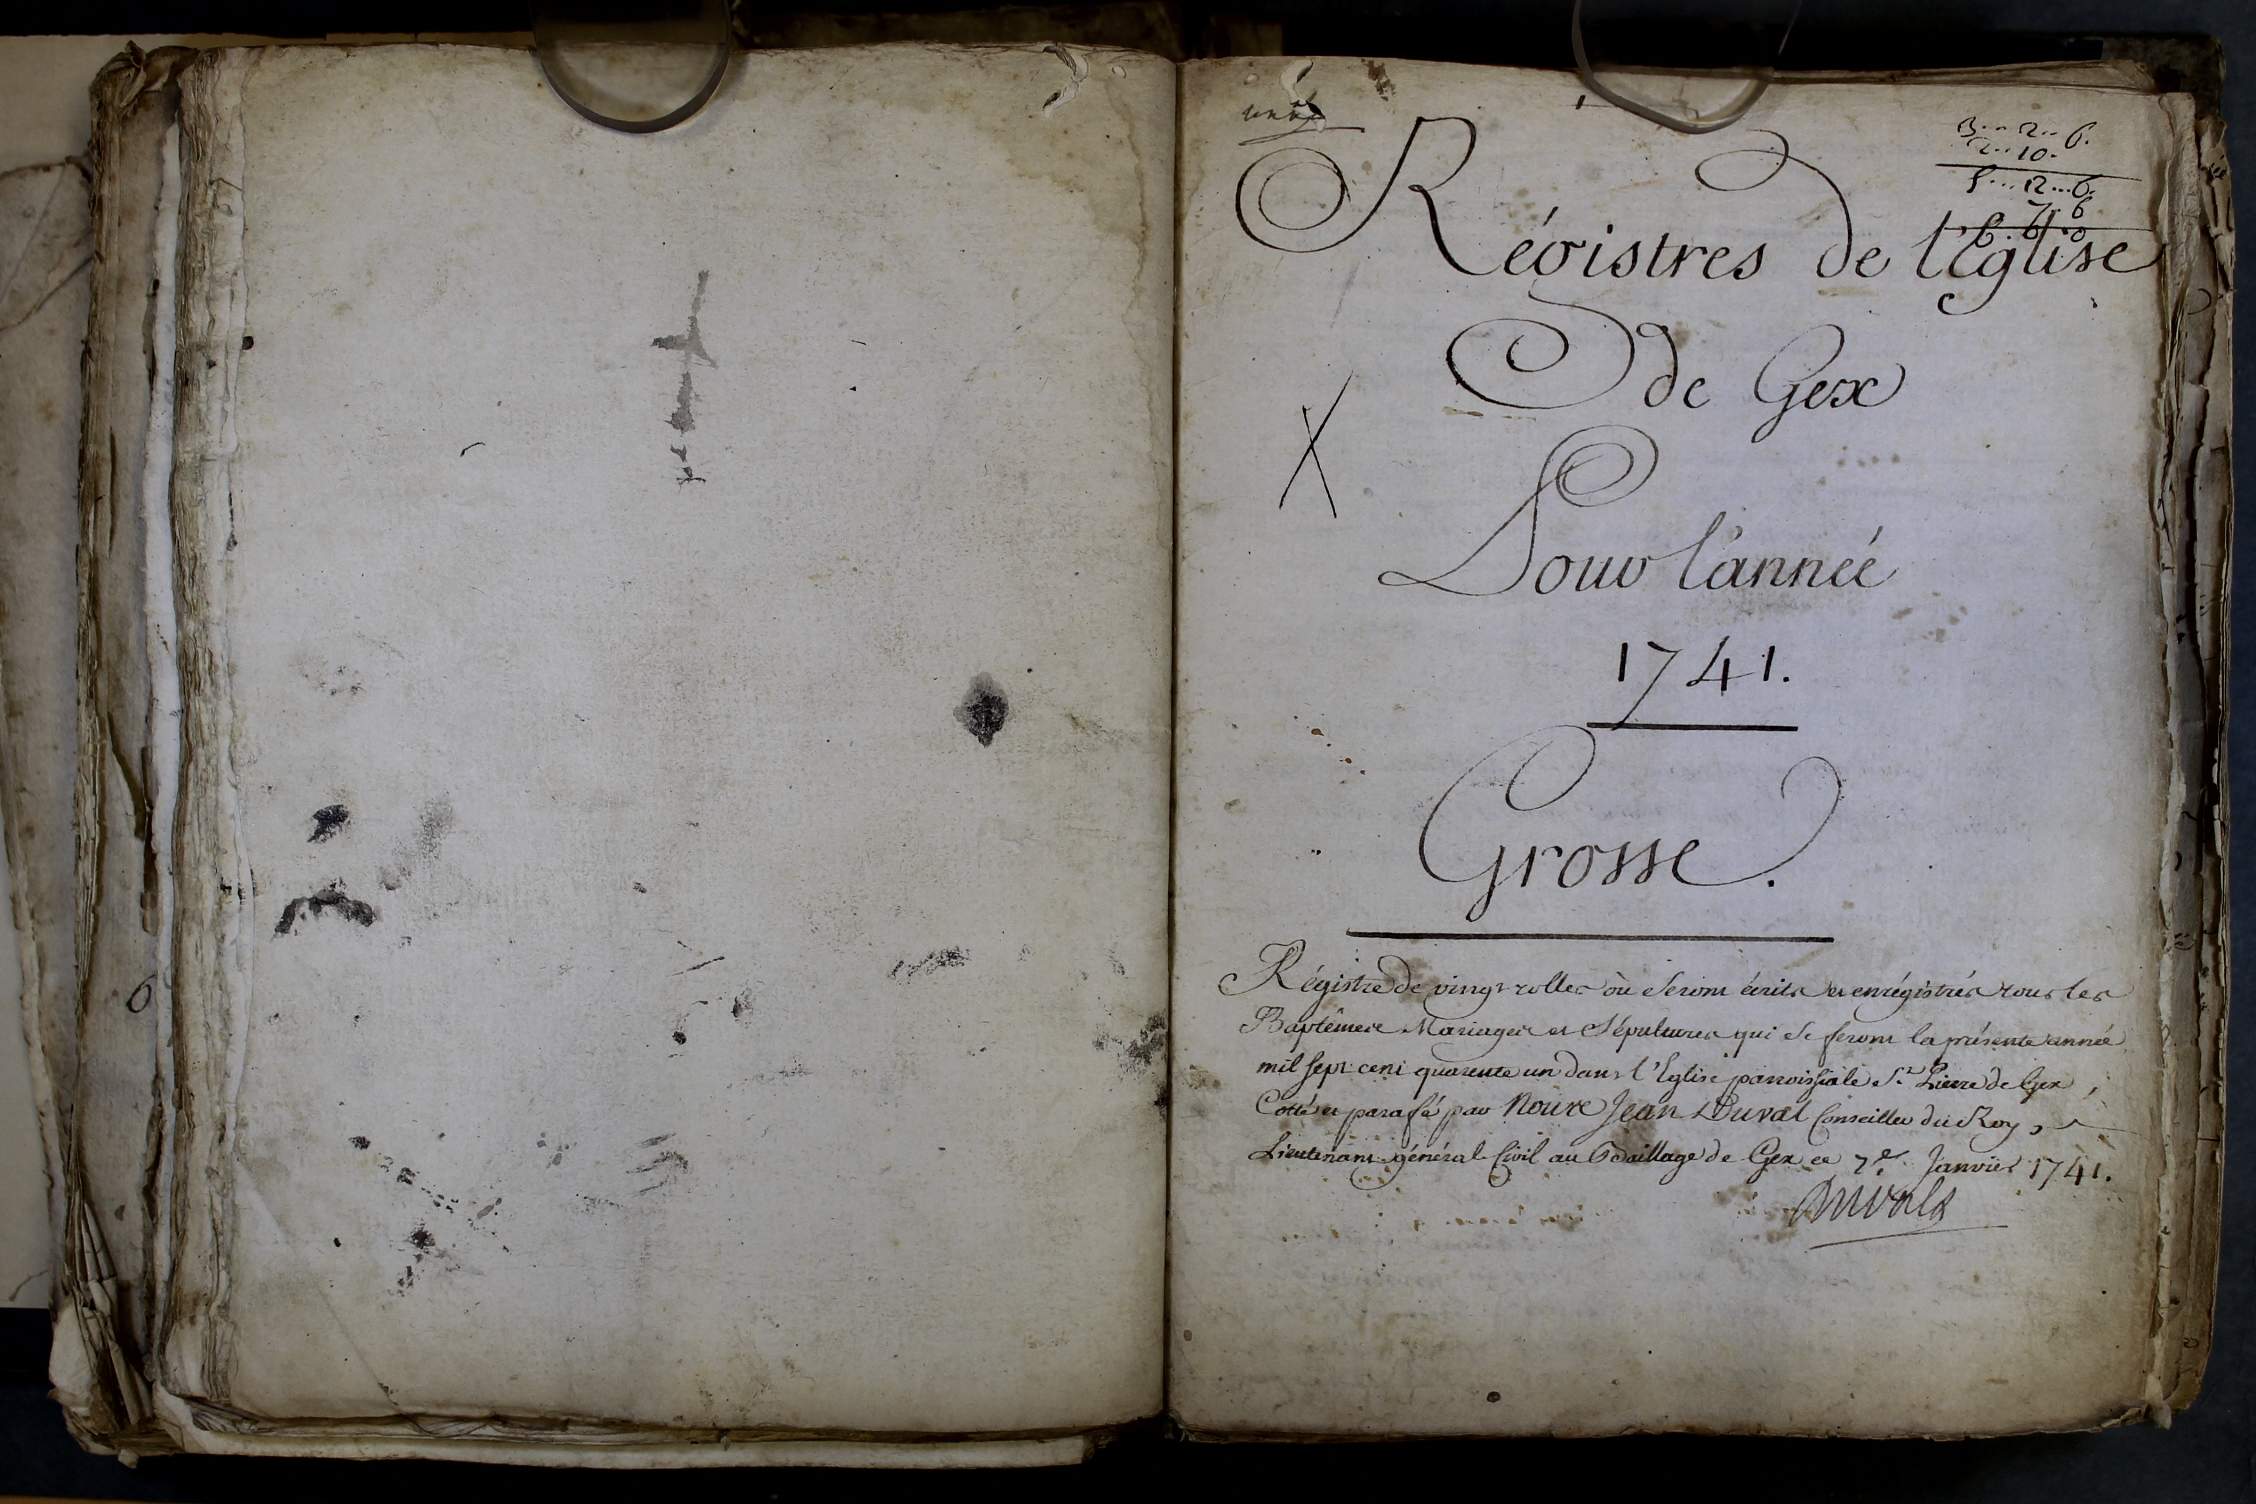 3...2..6.
2..10.
5...12...6.
Régistres de l'Eglise
de Gex
Pour l'année
1741.
Grosse.
Régistre de vingt rolles où seront écrits et enrégistrés tous les
Baptêmes Mariages et Sépultures qui se feront la présente année
mil sept cent quarente un dans l'Eglise parroissiale St. Pierre de Gex,
Cotté et parafé par Noure Jean Duval Conseiller du Roy,
Lieutenant général Civil au Bailliage de Gex ce 7e. Janvier 1741.
Duval